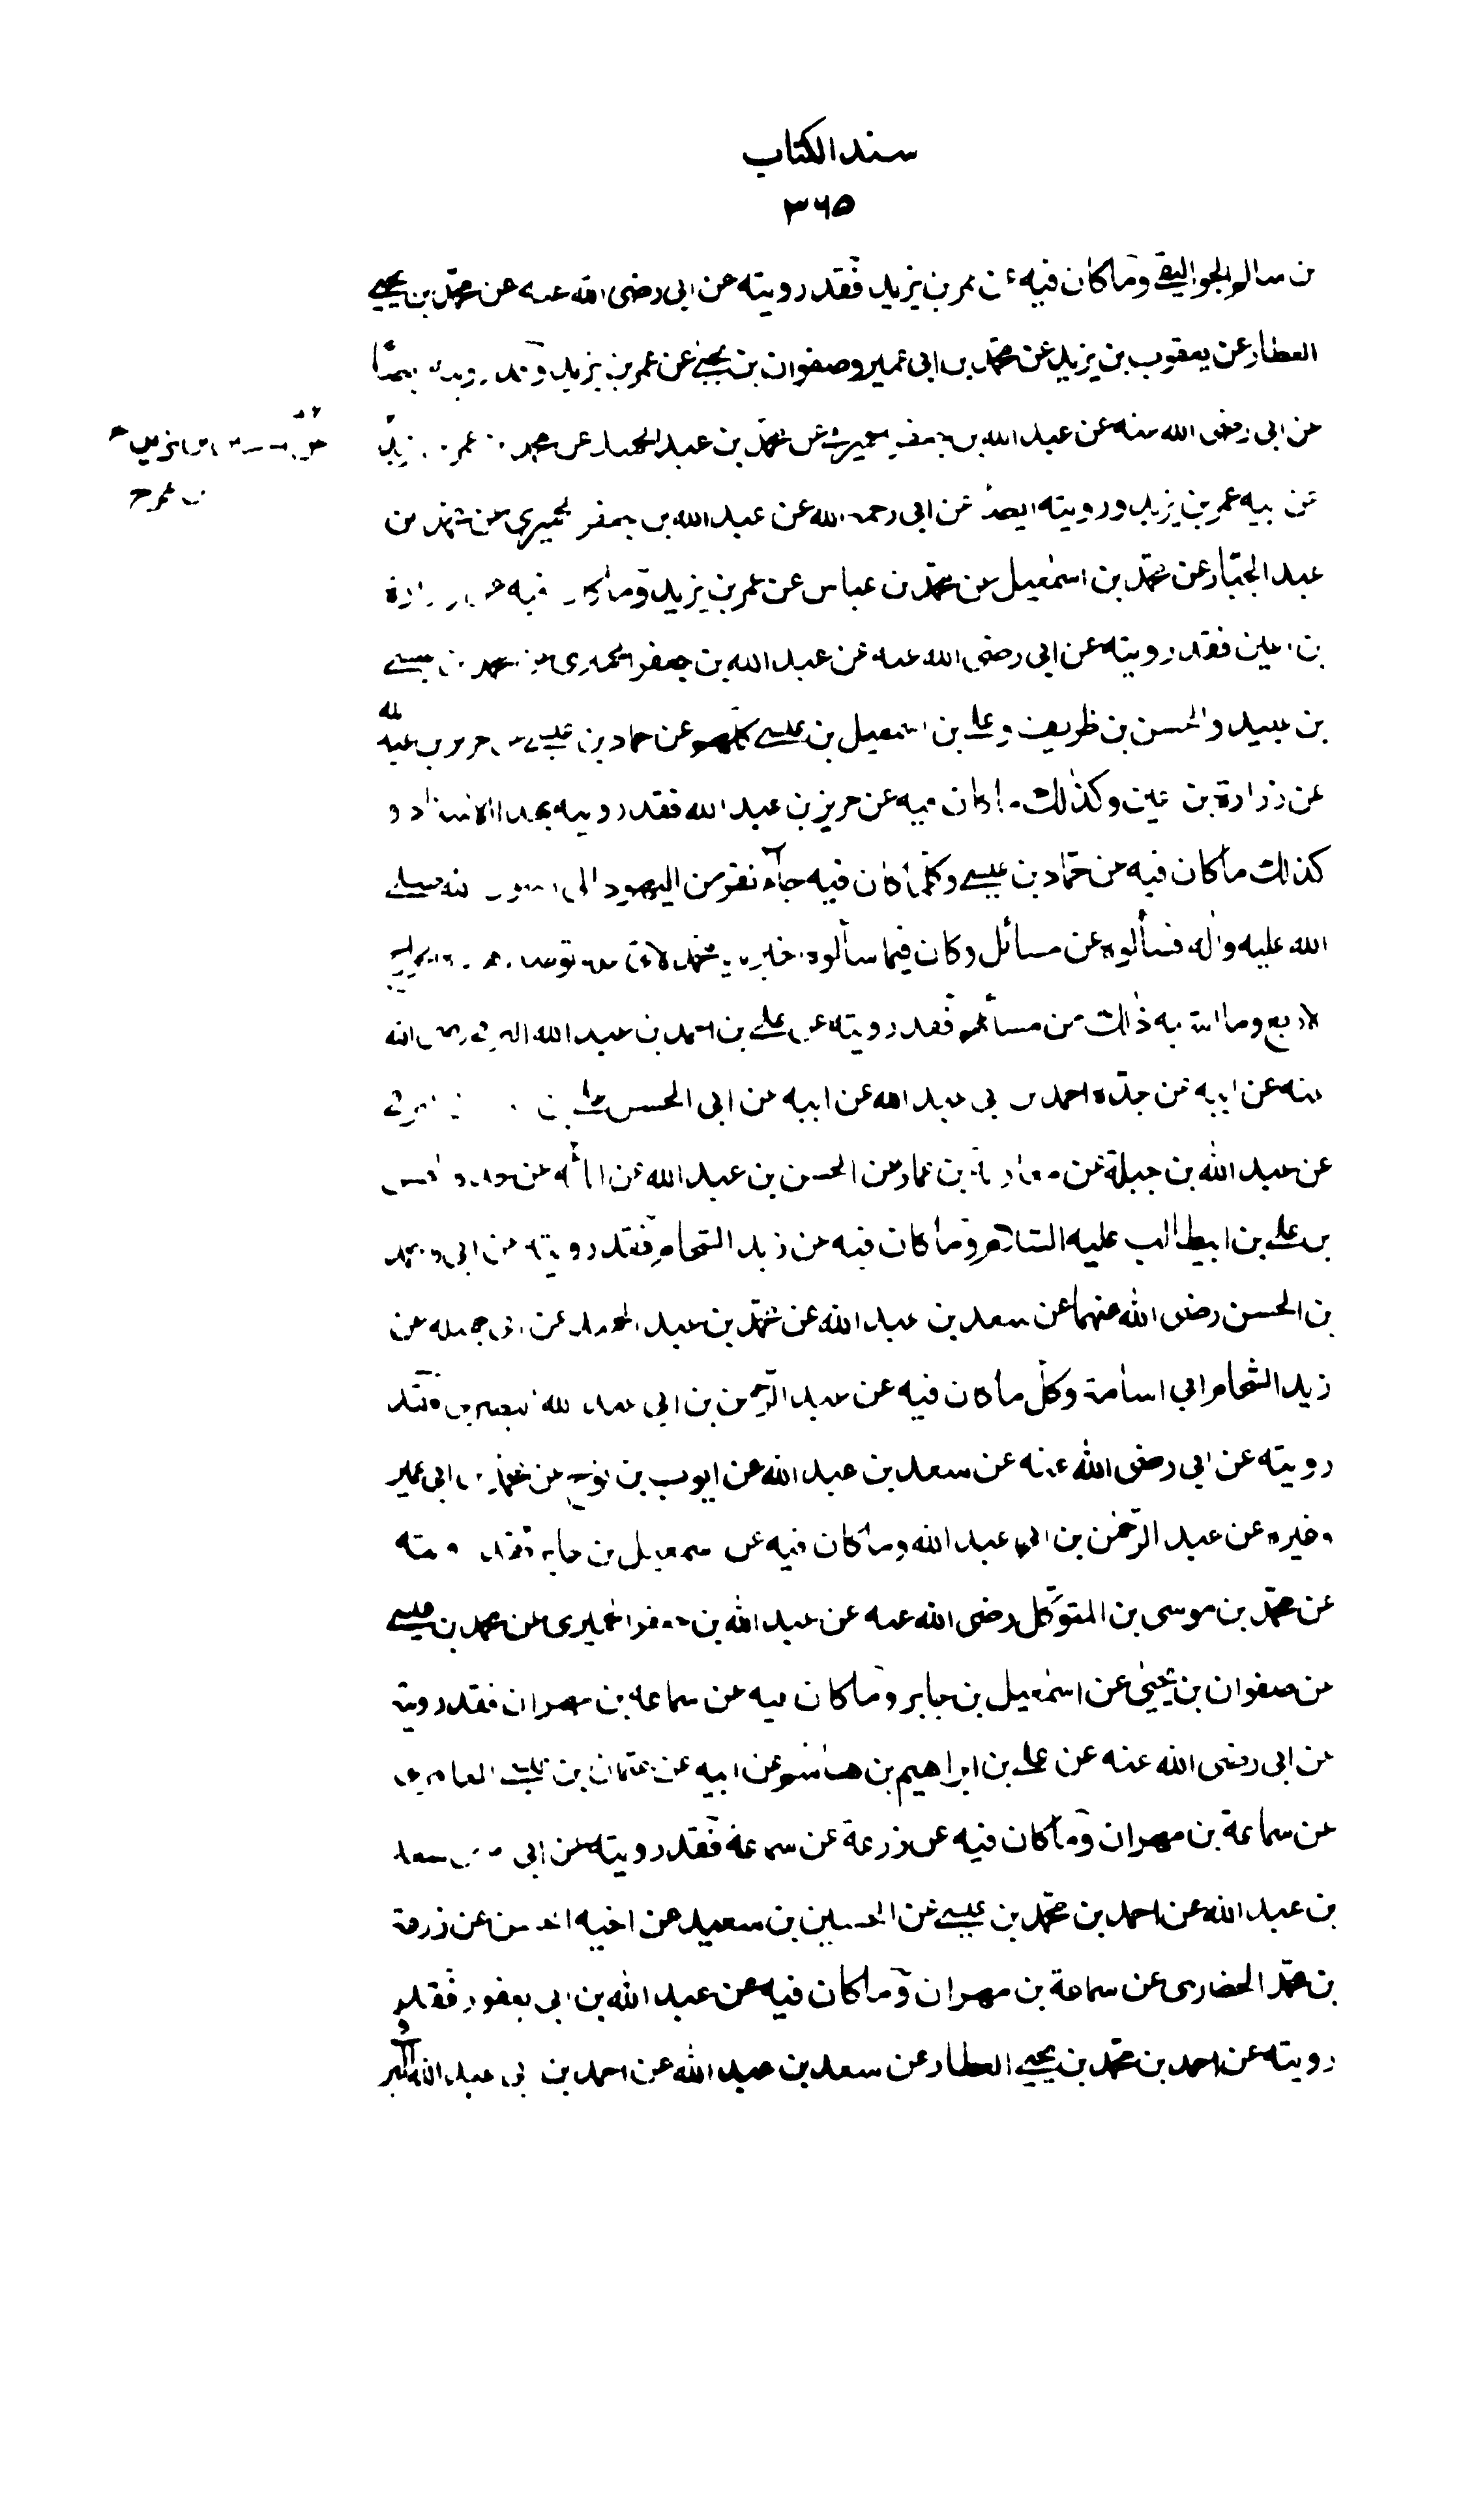 سند الكتاب
٣٦٥
بن سالم الجواليقي وما كان فيه عن عمر بن يزيد فقد رويته عن ابى رضى الله عنه عن محمّد بن يحيى
العطار عن يعقوب بن يزيد عن محمّد بن ابى عمير وصفوان بن يحيى عن عمر بن يزيد وقد رويته ايضًا
عن ابى رضى الله عنه عن عبد الله بن جعفر الحميرى عن محمّد بن عبد الحميد عن محمد بن عمر بن يزيد
عن ابيه عمر بن يزيد ورويته ايضًا عن ابى رحمه الله عن عبد الله بن جعفر الحميرى عن محمّد بن
عبد الجبّار عن محمّد بن اسمعيل عن محمّد بن عباس عن عمر بن يزيد وما كان فيه عن زرارة
بن اعين فقد رويته عن ابى رضى الله عنه عن عبد الله بن جعفر الحميرى عن محمد بن عيسى
بن عبيد والحسن بن ظريف وعلى بن اسمعيل بن عيسى كلهم عن حماد بن عيسى عن حريز بن عبد الله
عن زرارة بن اعين وكذلك ما كان فيه عن حريز بن عبد الله فقد رويته بهذا الاسناد و
كذلك ما كان فيه عن حمّاد بن عيسى وكلّما كان فيه جآء نفر من اليهود الى رسول الله صلى
الله عليه واله فسألوه عن مسائل وكان فيما سألوه اخبرنا يا محمّد لاى
لاربع وما اشبه ذلك من مسائلهم فقد رويته عن على بن احمد بن عبد الله البرقى رضى الله
عنه عن ابيه عن جدّه احمد بن ابى عبد الله عن ابيه عن ابى الحسن على بن
عن عبد الله بن جبلة عن معاوية بن عمار عن الحسن بن عبد الله عن ابائه عن جده الحسن
بن على بن ابيطالب عليه السّلام وما كان فيه عن زيد الشّحام فقد رويته عن ابى ومحمد
بن الحسن رضى الله عنهما عن سعد بن عبد الله عن محمّد بن عبد الحميد عن ابى جميلة عن
زيد الشّحام ابى اسامة وكلّ ما كان فيه عن عبد الرّحمن بن ابى عبد الله البصرى فقد
رويته عن ابى رضى الله عنه عن سعد بن عبد الله عن ايوب بن نوح عن محمّد بن ابى عمير
وغيره عن عبد الرّحمن بن ابى عبد الله وما كان فيه عن اسمعيل بن جابر فقد رويته
عن محمّد بن موسى بن المتوكّل رضى الله عنه عن عبد الله بن جعفر الحميرى عن محمد بن عيسى
عن صفوان بن يحيى عن اسمعيل بن جابر وما كان فيه عن سماعة بن مهران فقد رويته
عن ابى رضى الله عنه عن على بن ابراهيم بن هاشم عن ابيه عن عثمان بن عيسى العامرى
عن سماعة بن مهران وما كان فيه عن زرعة عن سماعة فقد رويته عن ابى عن سعد
بن عبد الله عن احمد بن محمّد بن عيسى عن الحسين بن سعيد عن اخيه الحسن عن زرعة
بن محمّد الحضارى عن سماعة بن مهران وما كان فيه عن عبد الله بن ابى يعفور فقد
رويته عن احمد بن محمّد بن يحيى العطار عن سعد بن عبد الله عن احمد بن ابى عبد الله البرقى